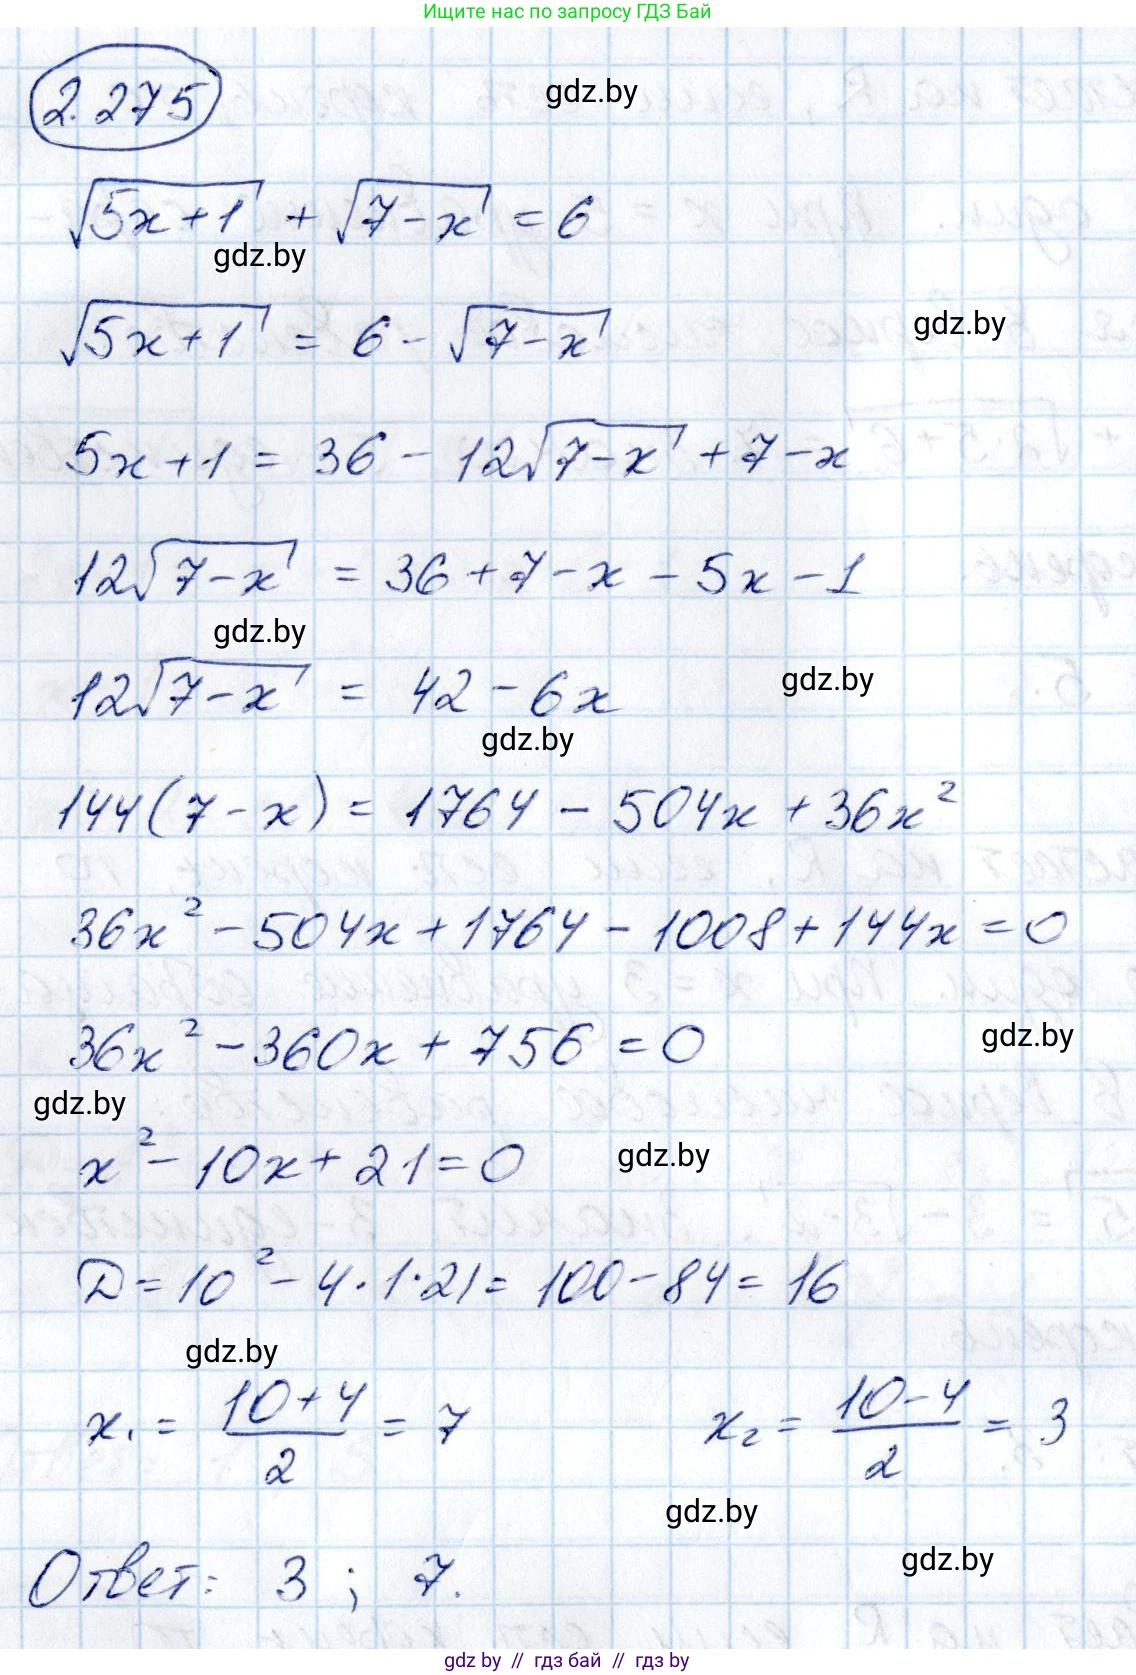 Ищите нас по запросу ГДЗ Бай
2.275
gdz.by
√(5x+1) + √(7-x) = 6
gdz.by
gdz.by
√(5x+1) = 6 - √(7-x)
5x+1 = 36 - 12√(7-x) + 7 - x
12√(7-x) = 36 + 7 - x - 5x - 1
gdz.by
gdz.by
12√(7-x) = 42 - 6x
gdz.by
144(7-x) = 1764 - 504x + 36x²
36x² - 504x + 1764 - 1008 + 144x = 0
36x² - 360x + 756 = 0
gdz.by
gdz.by
x² - 10x + 21 = 0
gdz.by
D = 10² - 4·1·21 = 100 - 84 = 16
gdz.by
x₁ = (10+4)/2 = 7    x₂ = (10-4)/2 = 3
gdz.by
gdz.by
Ответ: 3 ; 7.
gdz.by // гдз бай // гдз by